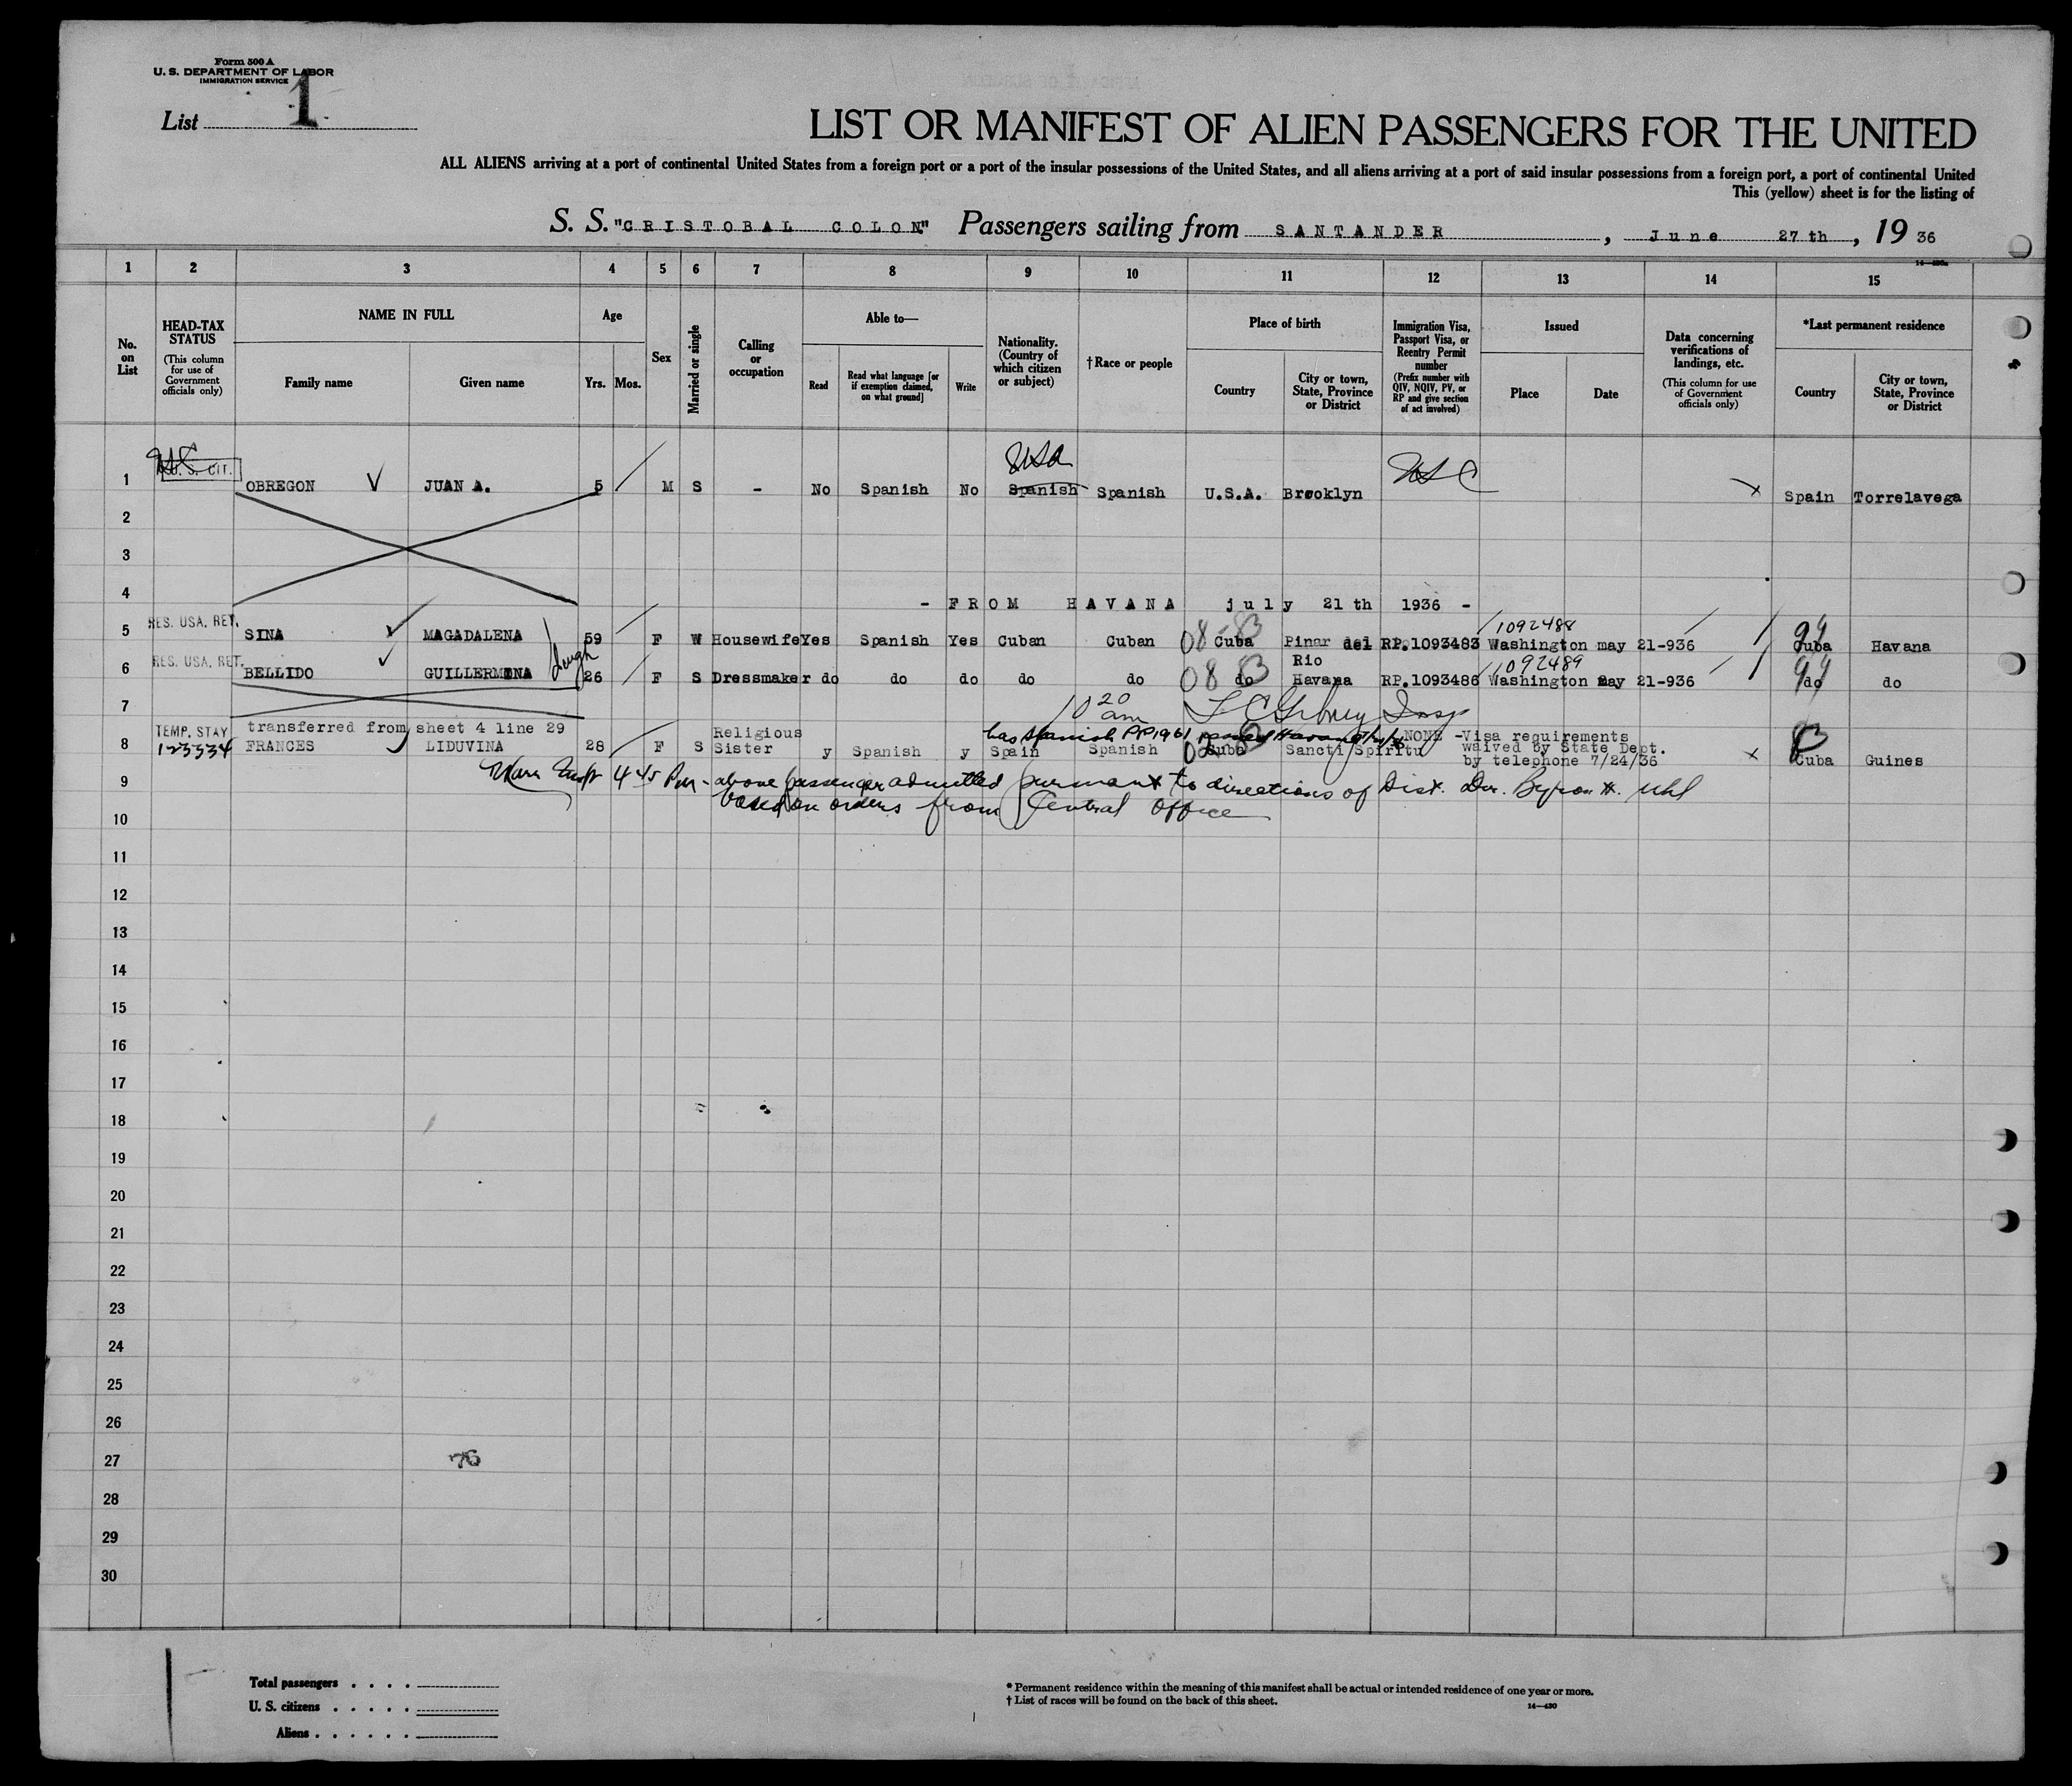 Form 500 A
U. S. DEPARTMENT OF LABOR
IMMIGRATION SERVICE
List 1
LIST OR MANIFEST OF ALIEN PASSENGERS FOR THE UNITED
ALL ALIENS arriving at a port of continental United States from a foreign port or a port of the insular possessions of the United States, and all aliens arriving at a port of said insular possessions from a foreign port, a port of continental United
This (yellow) sheet is for the listing of
S. S. "CRISTOBAL COLON" Passengers sailing from SANTANDER, June 27th, 1936
1 2 3 4 5 6 7 8 9 10 11 12 13 14 15
No. on List
HEAD-TAX STATUS
(This column for use of Government officials only)
NAME IN FULL
Family name
Given name
Age
Yrs. Mos.
Sex
Married or single
Calling or occupation
Able to—
Read
Read what language [or if exemption claimed, on what ground]
Write
Nationality. (Country of which citizen or subject)
† Race or people
Place of birth
Country
City or town, State, Province or District
Immigration Visa, Passport Visa, or Reentry Permit number
(Prefix number with QIV, NQIV, PV, or RP and give section of act involved)
Issued
Place
Date
Data concerning verifications of landings, etc.
(This column for use of Government officials only)
*Last permanent residence
Country
City or town, State, Province or District
USA
USC
U. S. CIT.
1 OBREGON V JUAN A. 5 M S - No Spanish No Spanish Spanish U.S.A. Brooklyn x Spain Torrelavega
2
3
4
- FROM HAVANA july 21th 1936 -
RES. USA. RET. 1092488
5 SINA MAGADALENA 59 F W Housewife Yes Spanish Yes Cuban Cuban 08 83 Cuba Pinar del Rio RP.1093483 Washington may 21-936 Cuba Havana
RES. USA. RET. 1092489
6 BELLIDO GUILLERMINA daugh 26 F S Dressmaker do do do do do 08 83 do Havana RP.1093486 Washington may 21-936 do do
7
10 20 am
TEMP. STAY transferred from sheet 4 line 29
has Spanish PP 1961 issued Havana
123534
8 FRANCES LIDUVINA 28 F S Religious Sister y Spanish y Spain Spanish Cuba Sancti Spiritu NONE -Visa requirements waived by State Dept. by telephone 7/24/36 x Cuba Guines
9 4 45 Pm - above passenger admitted pursuant to directions of Dist. Dir. Byron H. Uhl
based on orders from Central Office
10
11
12
13
14
15
16
17
18
19
20
21
22
23
24
25
26
27 76
28
29
30
Total passengers . . . .
U. S. citizens . . . . .
Aliens . . . . . .
* Permanent residence within the meaning of this manifest shall be actual or intended residence of one year or more.
† List of races will be found on the back of this sheet.
14—430